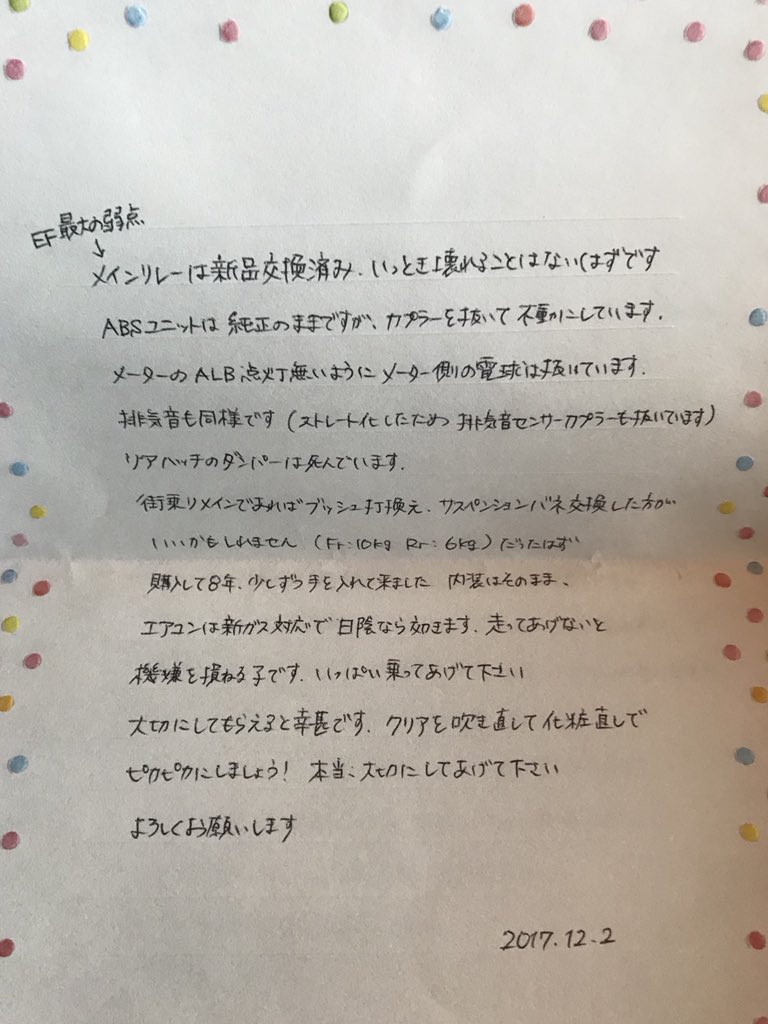 EF最大の弱点
↓
メインリレーは新品交換済み、いっとき壊れることはないはずです
ABSユニットは純正のままですが、カプラーを抜いて不動にしています。
メーターのALB点灯無いようにメーター側の電球は抜いています。
排気音も同様です(ストレート化したため排気音センサーカプラーも抜いています)
リアハッチのダンパーは死んでいます。
街乗りメインであればブッシュ打換え、サスペンションバネ交換した方が
いいかもしれません (Fr:10kg Rr:6kg)だったはず
購入して8年、少しずつ手を入れて来ました 内装はそのまま、
エアコンは新ガス対応で日陰なら効きます。走ってあげないと
機嫌を損ねる子です。いっぱい乗ってあげて下さい
大切にしてもらえると幸甚です。クリアを吹き直して化粧直しで
ピカピカにしましょう! 本当に大切にしてあげて下さい
よろしくお願いします
2017.12.2